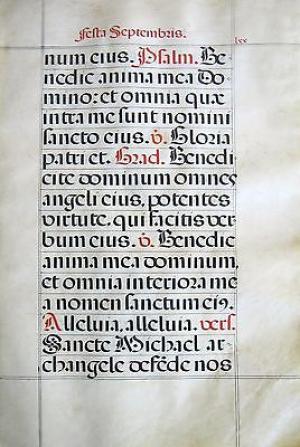 festa Septembris.
lxx
num eius. Psalm. Be-
nedic anima mea Do-
mino: et omnia quæ
intra me sunt nomini
sancto eius. ℣. Gloria
patri et. Grad. Benedi
cite dominum omnes
angeli eius, potentes
virtute, qui facitis ver
bum eius. ℣. Benedic
anima mea dominum,
et omnia interiora me
a nomen sanctum ei9.
Alleluia, alleluia. vers.
Sancte Michael ar-
changele defēde nos